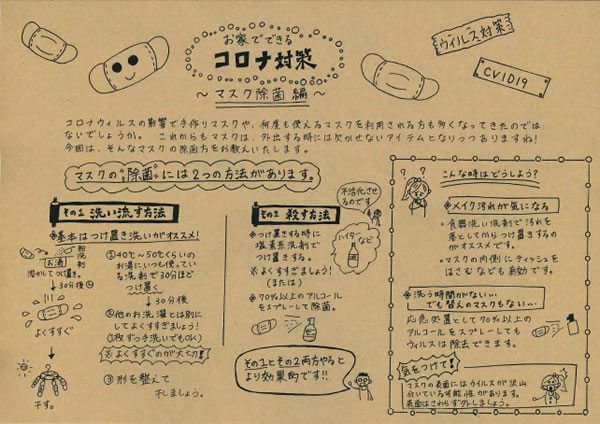 お家でできる
コロナ対策
～マスク除菌編～
ウィルス対策
CVID19
コロナウィルスの影響で手作りマスクや、何度も使えるマスクを利用される方も多くなってきたのでは
ないでしょうか。これからもマスクは、外出する時には欠かせないアイテムとなりつつありますね!
今回は、そんなマスクの除菌方をお教えいたします。
マスクの"除菌"には2つの方法があります。
その1 洗い流す方法
※基本はつけ置き洗いがオススメ!
粉洗剤
お湯
溶かしてつけ置き。
30分後
よくすすぐ
干す。
①40℃～50℃くらいの
お湯にいつも使ってい
る洗剤で30分ほど
つけ置く
30分後
②他のお洗濯とは別に
してよくすすぎましょう!
(1枚ずつ洗いでもOK)
※よくすすぐのが大切!!
③形を整えて
干しましょう。
その2 殺す方法
不活化させ
るのです
※つけ置きする時に
塩素系洗剤で
つけ置きする。
※よくすすぎましょう!
(または)
ハイターなど
※70%以上のアルコール
をスプレーして除菌。
その1とその2両方やると
より効果的です!!
こんな時はどうしよう?
※メイク汚れが気になる
・食器洗い洗剤で汚れを
落としてからつけ置きするの
がオススメです。
・マスクの内側にティッシュを
はさむなども有効です。
※洗う時間がない…
でも替えのマスクもない…
応急処置として70%以上の
アルコールをスプレーしても
ウィルスは除去できます。
気をつけて!
マスクの表面にはウィルスが沢山
付いている可能性があります。
表面はさわらず外しましょう。